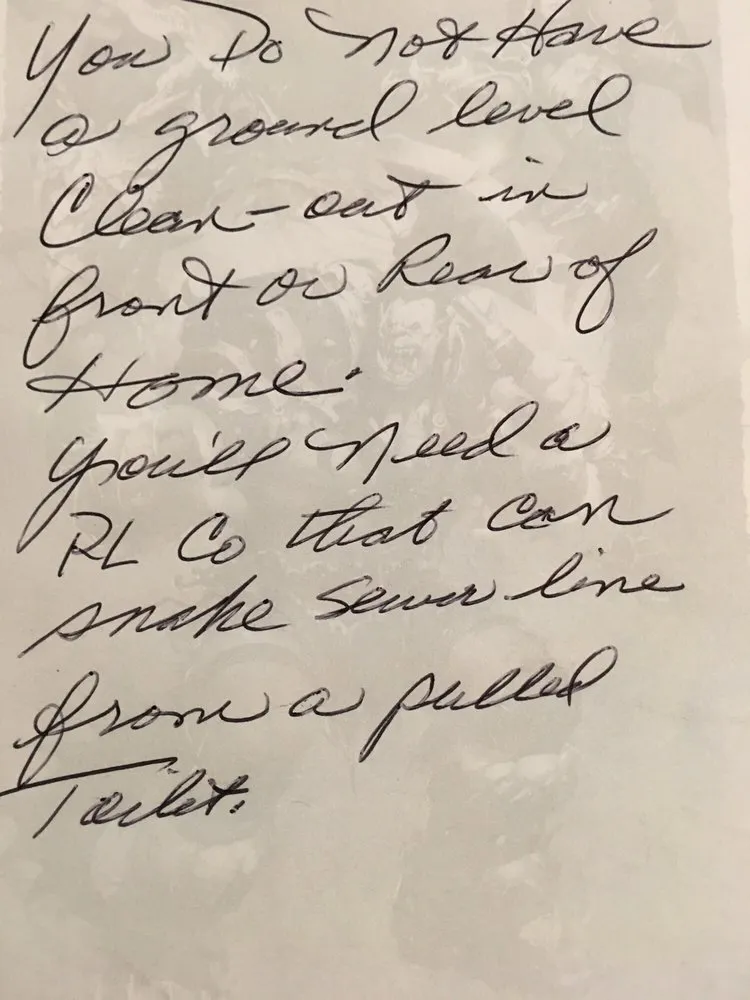 You Do Not Have
a ground level
Clean-out in
front or Rear of
Home.
You'll Need a
RL Co that can
snake sewer line
from a pulled
Toilet.